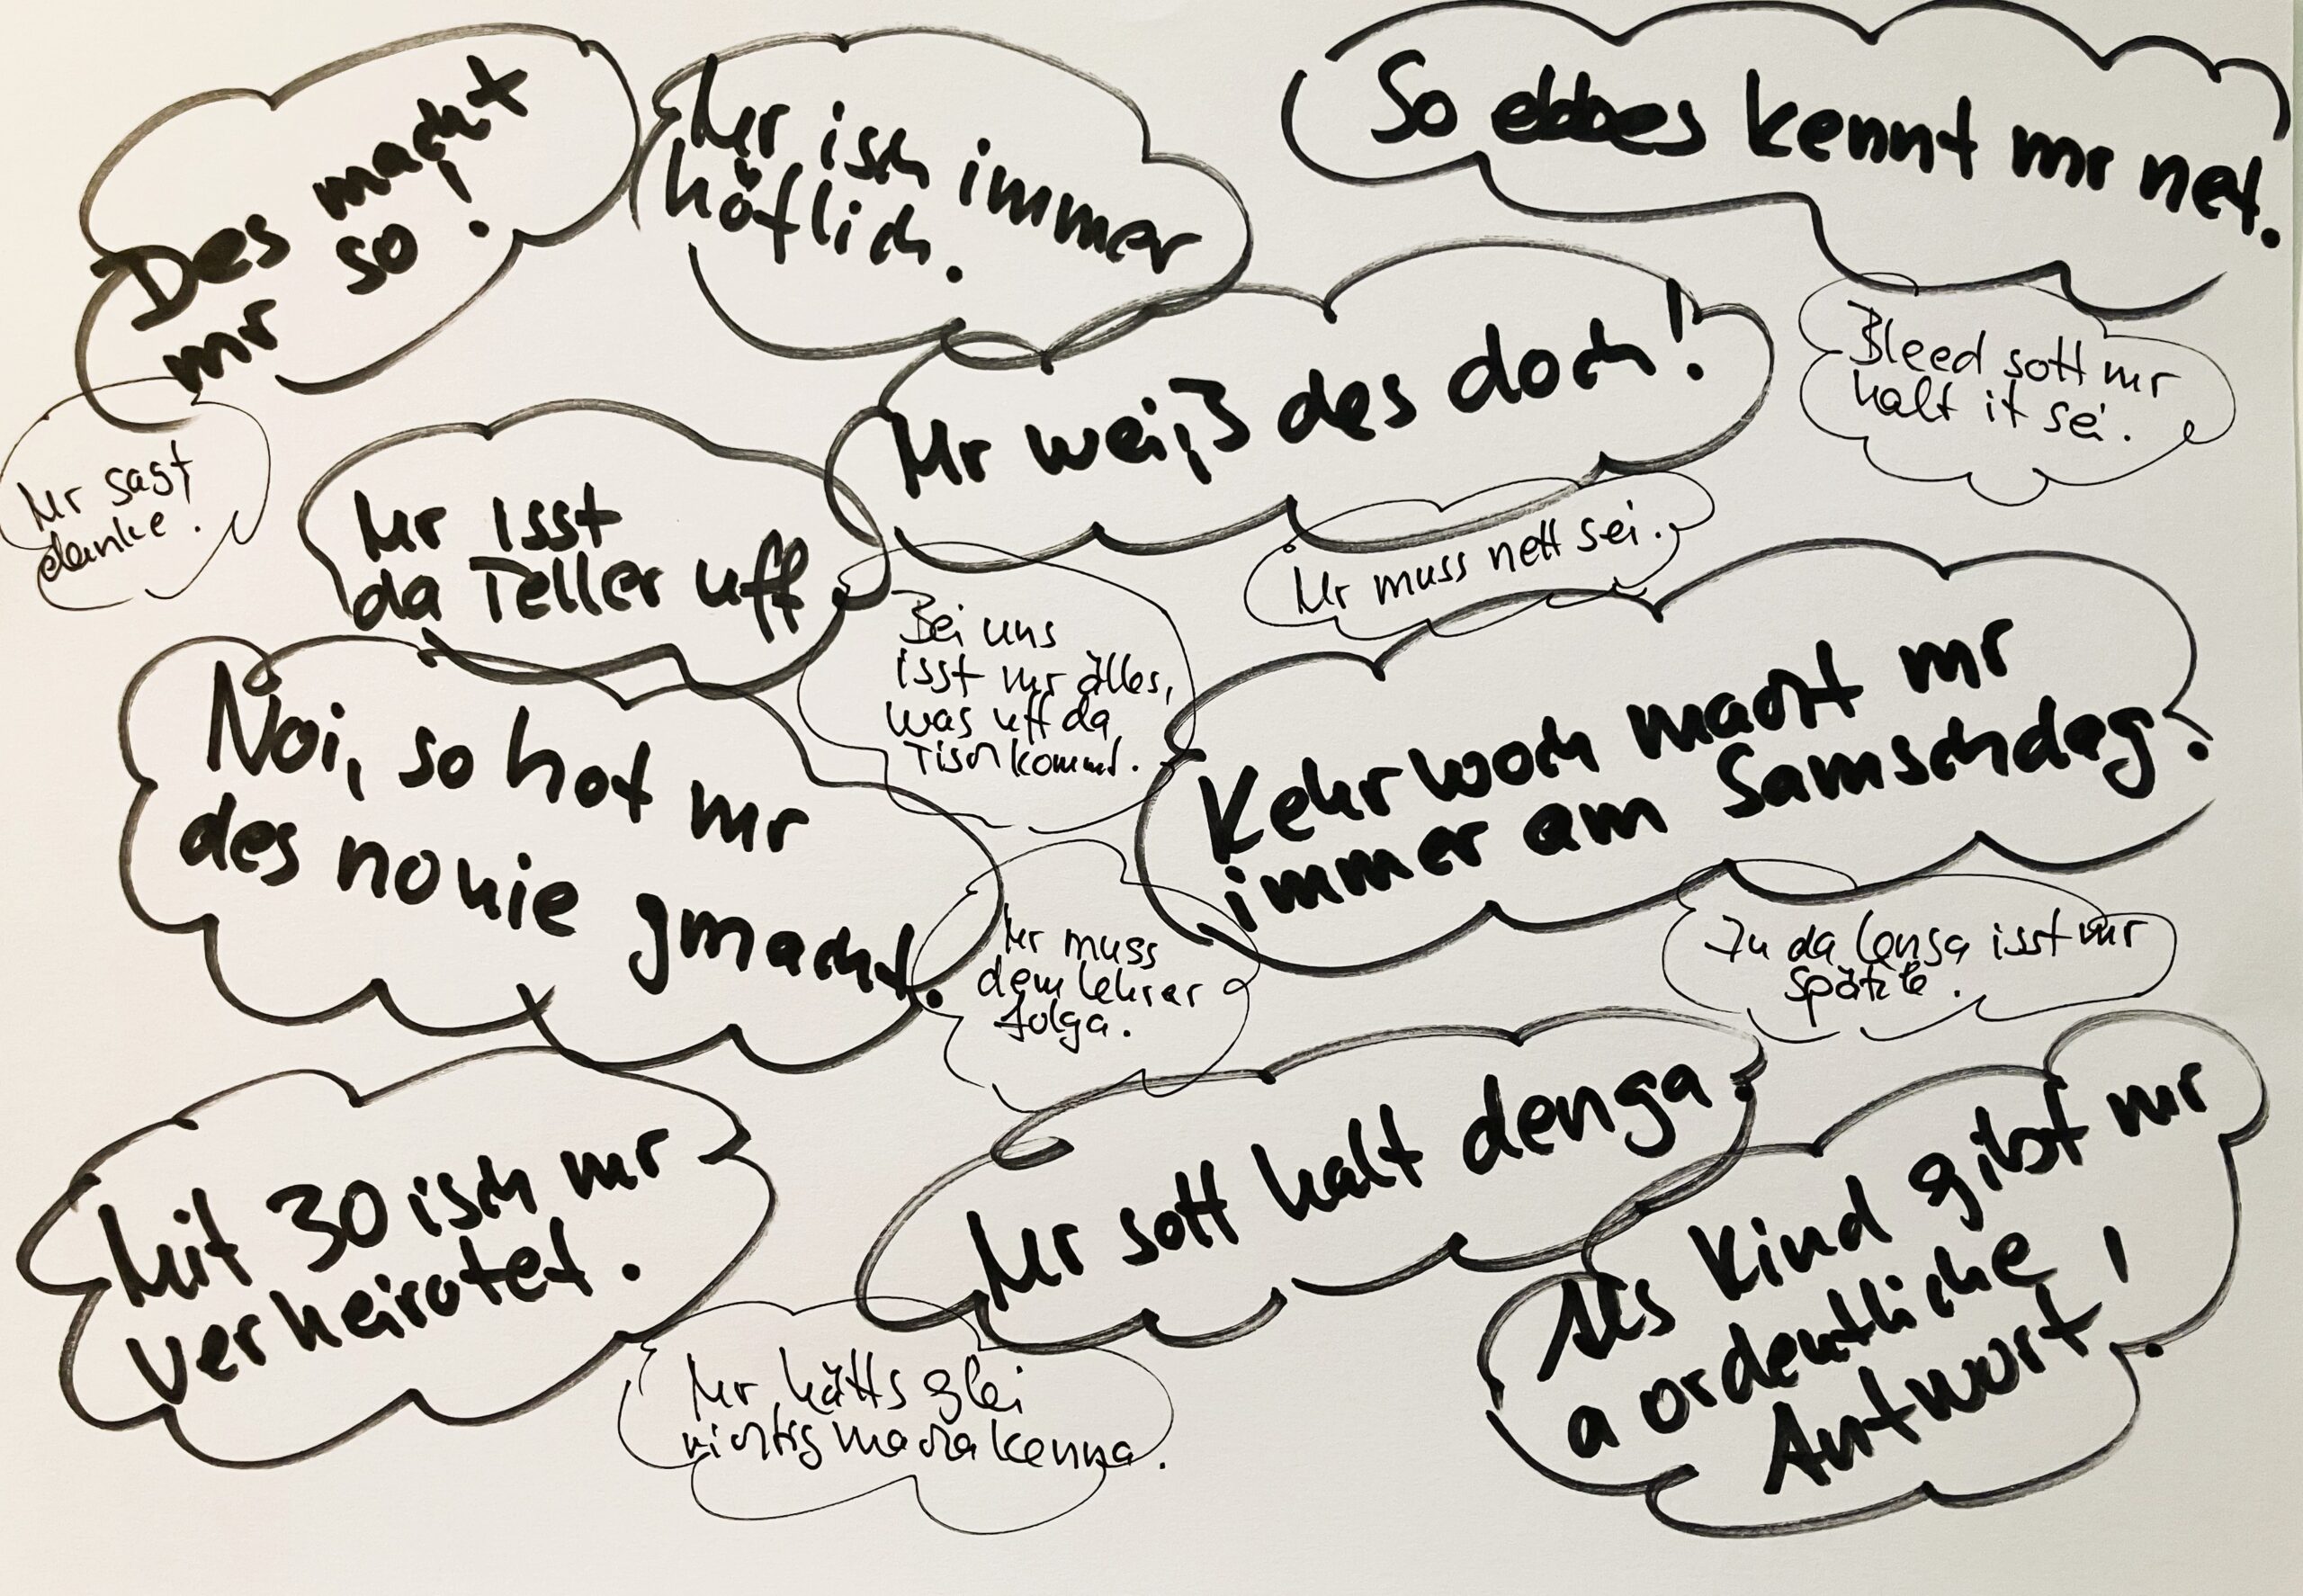 Des macht
mr so!
Mr isch immer
höflich.
So ebbes kennt mr net.
Mr weiß des doch!
Bleed sott mr
halt it sei.
Mr sagt
danke.
Mr isst
da Teller uff
Mr muss nett sei.
Bei uns
isst mr älles,
was uff da
Tisch kommt.
Noi, so hot mr
des no nie gmacht.
Kehrwoch macht mr
immer am Samschdag.
Mr muss
dem Lehrer
folga.
Zu da Lensa isst mr
Spätzle.
Mit 30 isch mr
verheirotet.
Mr sott halt denga.
Als Kind gibt mr
a ordentliche
Antwort!
Mr hätts glei
richtig macha kenna.